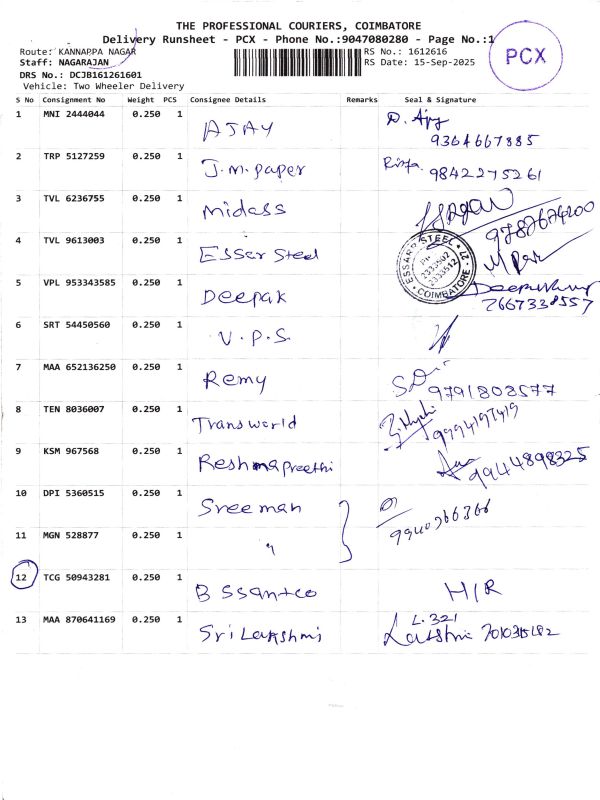 THE PROFESSIONAL COURIERS, COIMBATORE
Delivery Runsheet - PCX - Phone No.:9047080280 - Page No.:1
PCX
Route: KANNAPPA NAGAR
RS No.: 1612616
Staff: NAGARAJAN
RS Date: 15-Sep-2025
DRS No.: DCJB161261601
Vehicle: Two Wheeler Delivery
S No Consignment No Weight PCS Consignee Details Remarks Seal & Signature
1 MNI 2444044 0.250 1 AJAY D. Ajy
9364667885
2 TRP 5127259 0.250 1 J.M.paper 9842275261
3 TVL 6236755 0.250 1 Midass
4 TVL 9613003 0.250 1 Essar Steel
ESSAR STEEL
PH:
2333502
2333512
COIMBATORE
5 VPL 953343585 0.250 1 Deepak
7667338557
6 SRT 54450560 0.250 1 V.P.S.
7 MAA 652136250 0.250 1 Remy
9791808577
8 TEN 8036007 0.250 1 Transworld
9994197419
9 KSM 967568 0.250 1 Reshmapreethi
9944898325
10 DPI 5360515 0.250 1 Sreeman
9940366366
11 MGN 528877 0.250 1 "
12 TCG 50943281 0.250 1 B ssantco H/R
13 MAA 870641169 0.250 1 Sri Lakshmi L.321